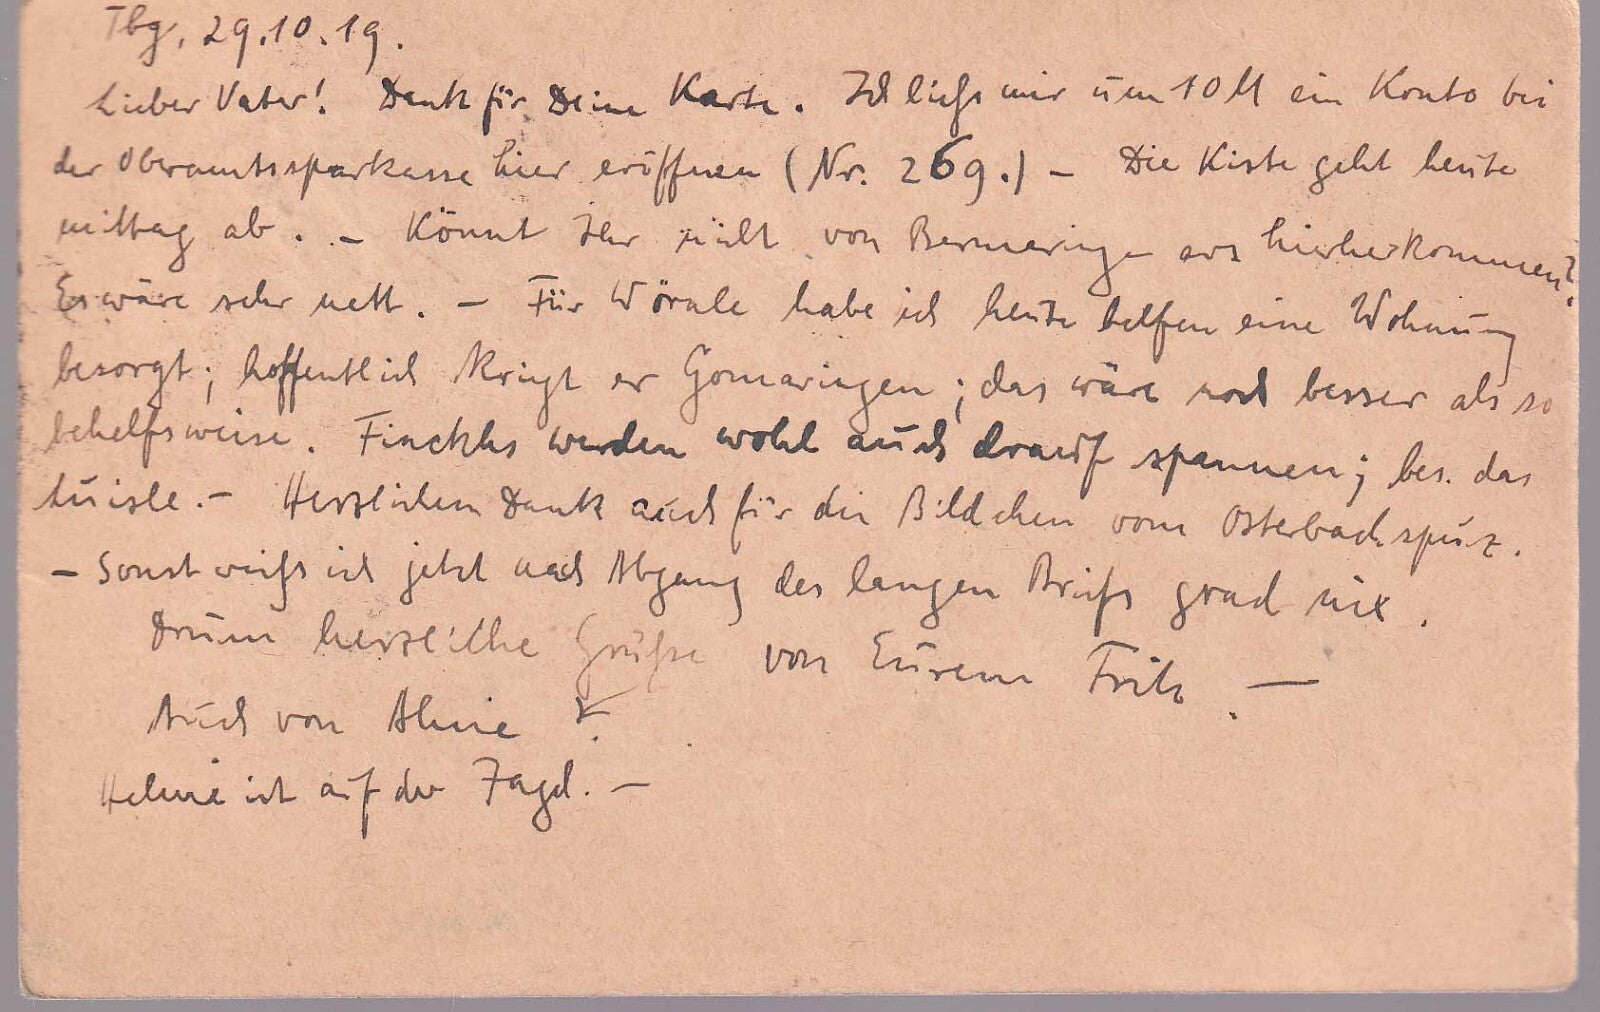 Tbg, 29.10.19.
Lieber Vater! Dank für Deine Karte. Ich ließ mir um 10 M ein Konto bei
der Oberamtssparkasse hier eröffnen (Nr. 269.) – Die Kiste geht heute
mittag ab. – Könnt Ihr nicht von Bermaringen aus hierher kommen?
Es wäre sehr nett. – Für Wörnle habe ich heute helfen eine Wohnung
besorgt; hoffentlich kriegt er Gomaringen; das wäre noch besser als so
behelfsweise. Finckhs werden wohl auch drauf spannen; bes. das
Luisle. – Herzlichen Dank auch für die Bildchen vom Osterbachspuz.
– Sonst weiß ich jetzt nach Abgang des langen Briefs grad nix.
Drum herzliche Grüße von Eurem Fritz. –
Auch von
ist auf der Jagd. –